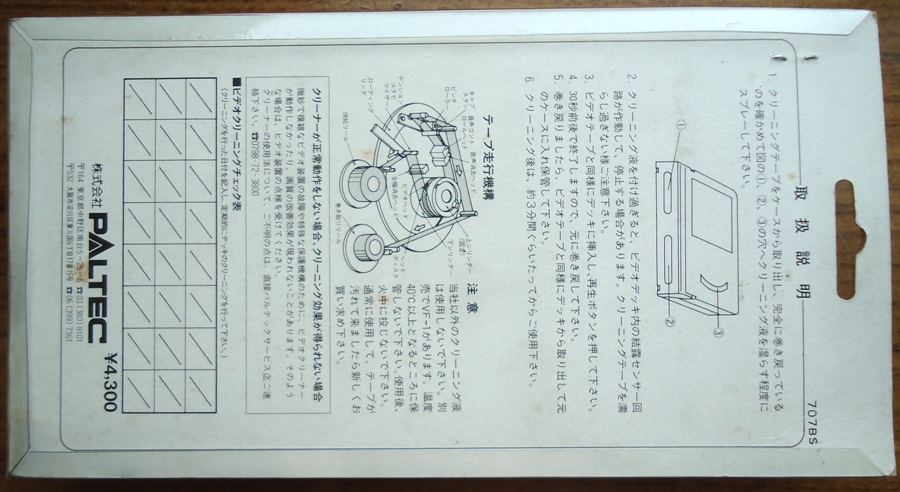 707BS
取扱説明
1. クリーニングテープをケースから取り出し、完全に巻き戻っている
のを確かめて図の①、②、③の穴へクリーニング液を湿らす程度に
スプレーして下さい。
①
②
③
2. クリーニング液を付け過ぎると、ビデオデッキ内の結露センサー回
路が作動して、停止する場合があります。クリーニングテープを濡
らし過ぎない様ご注意下さい。
3. ビデオテープと同様にデッキに挿入し、再生ボタンを押して下さい。
4. 30秒前後で終了しますので、元に巻き戻して下さい。
5. 巻き戻りましたら、ビデオテープと同様にデッキから取り出して元
のケースに入れ保管して下さい。
6. クリーニング後は、約3分間ぐらいたってからご使用下さい。
テープ走行機構
キャプスタン
ピンチローラー
音声消去ヘッド
ビデオヘッド
全幅消去ヘッド
供給リール
巻き取りリール
上シリンダー
(固定)
下シリンダー
ヘッドディスク
注意
当社以外のクリーニング液
は使用しないで下さい。別
売でVF-1があります。温度
40℃以上となるところに保
管しないで下さい。使用後、
火中に投じないで下さい。
通常に使用して、テープが
汚れて来ましたら新しくお
買い求め下さい。
クリーナーが正常動作をしない場合、クリーニング効果が得られない場合
微妙で複雑なビデオ装置の故障や特殊な保護機構のために、ビデオクリーナー
が動作しなかったり、画質の改善効果が現われないことがあります。そのよう
な場合は、ビデオ装置の点検を受けてください。
クリーナーの使用法について、ご不明の点は、直接パルテックサービス迄ご連
絡下さい。☎0798-72-3800
■ビデオクリーニングチェック表
(クリーニングを行った日付を記入し、定期的にデッキのクリーニングを行って下さい。)
株式会社 PALTEC ¥4,300
〒164 東京都中野区南台5-25-6 ☎03(380)8101
〒532 大阪市淀川区東三国1丁目17番15号 ☎06(399)7361